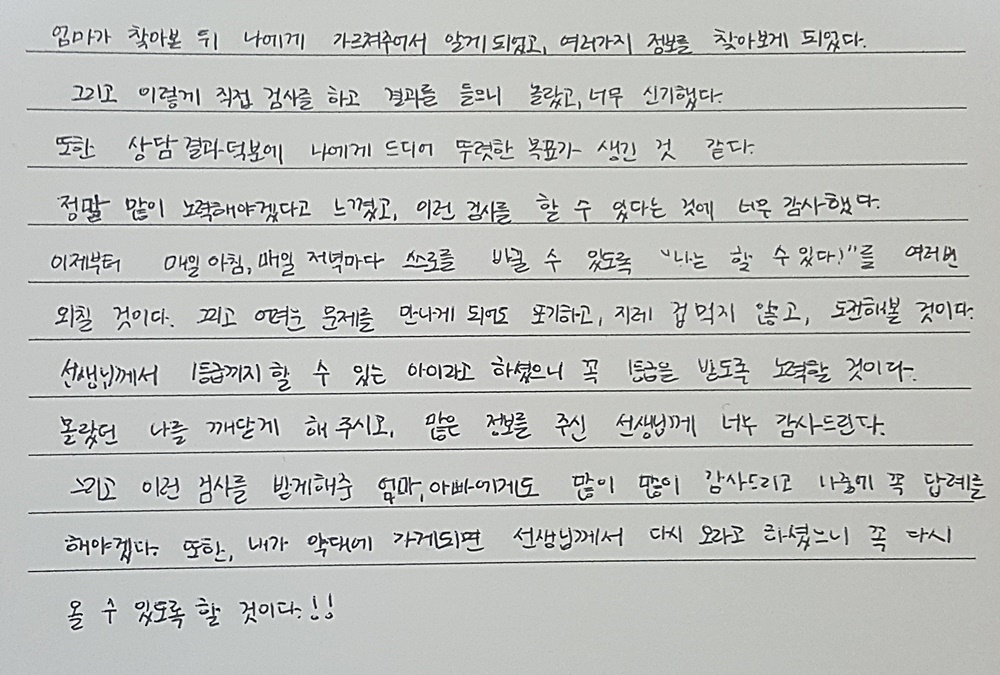 엄마가 찾아본 뒤 나에게 가르쳐주어서 알게 되었고, 여러가지 정보를 찾아보게 되었다.
그리고 이렇게 직접 검사를 하고 결과를 들으니 놀랐고, 너무 신기했다.
또한 상담 결과 덕분에 나에게 드디어 뚜렷한 목표가 생긴 것 같다.
정말 많이 노력해야겠다고 느꼈고, 이런 검사를 할 수 있다는 것에 너무 감사했다.
이제부터 매일 아침, 매일 저녁마다 스스로를 바꿀 수 있도록 "나는 할 수 있다!"를 여러번
외칠 것이다. 그리고 어려운 문제를 만나게 되어도 포기하고, 지레 겁 먹지 않고, 도전해볼 것이다.
선생님께서 1등급까지 할 수 있는 아이라고 하셨으니 꼭 1등급을 받도록 노력할 것이다.
몰랐던 나를 깨닫게 해 주시고, 많은 정보를 주신 선생님께 너무 감사드린다.
그리고 이런 검사를 받게해준 엄마, 아빠에게도 많이 많이 감사드리고 나중에 꼭 답례를
해야겠다. 또한, 내가 약대에 가게되면 선생님께서 다시 오라고 하셨으니 꼭 다시
올 수 있도록 할 것이다.!!